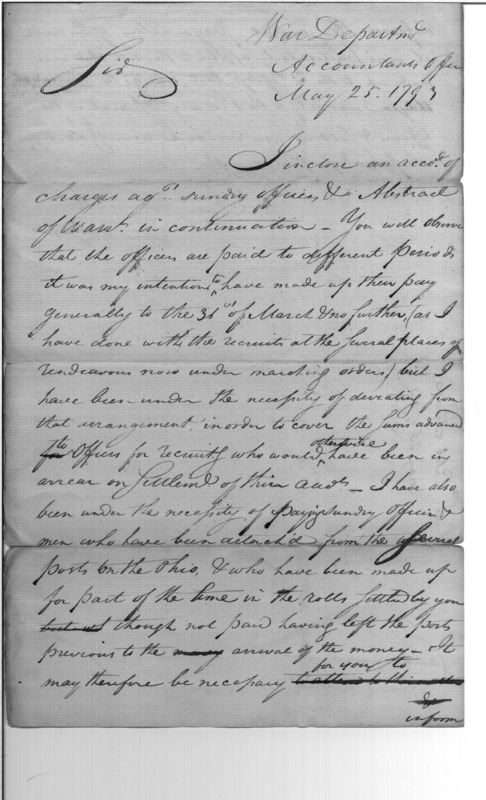 War Departmt
Accountants Office
May 25. 1793
Sir
I inclose an accot. of
charges agt. sundry officers & Abstract
of Warrts. in continuation – You will observe
that the officers are paid to different periods
it was my intention to have made up their pay
generally to the 31st of March & no further, (as I
have done with the recruits at the several places of
rendezvous now under marching orders) but I
have been under the necessity of deviating from
that arrangement in order to cover the sums advanced
to Officers for recruitg who would otherwise have been in
arrear on Settlemt of their accots – I have also
been under the necessity of paying sundry Officers &
men who have been detach'd from the several
posts on the Ohio, & who have been made up
for part of the time in the rolls settled by you
though not paid having left the posts
previous to the arrival of the money – It
may therefore be necessary for you to
&
inform